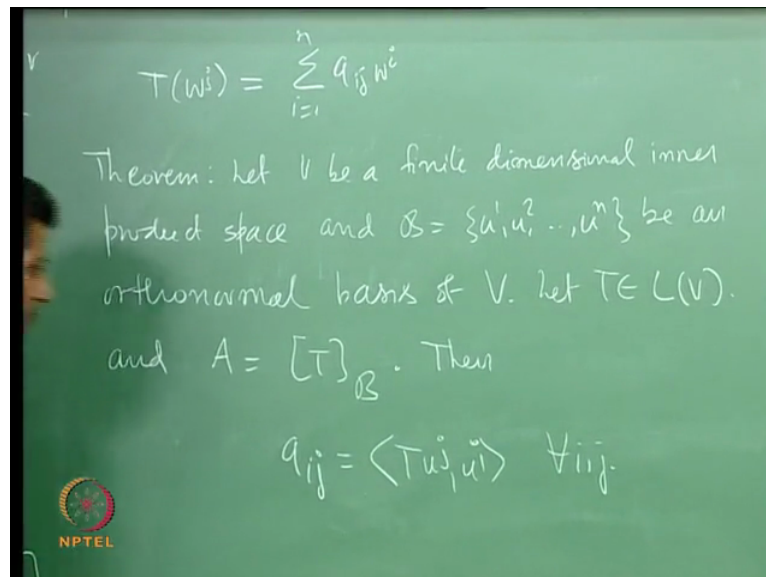 T(w^j) = \sum_{i=1}^{n} a_{ij} w^i
Theorem: Let V be a finite dimensional inner
product space and B = {u^1, u^2, ..., u^n} be an
orthonormal basis of V. Let T ∈ L(V).
and A = [T]_B. Then
a_{ij} = ⟨Tu^j, u^i⟩ ∀ i, j.
NPTEL